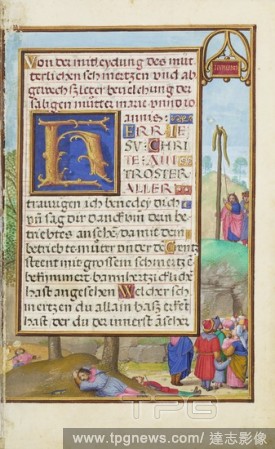 Von der mitleydung des müt
terlichen schmertzen vnd ab
gewechszleter bevelehung der
säligen můtter marie vnnd io
annis:
HERR IE
SV CHRI
TE XIII
TROSTER
ALLER
traurigen ich benedey dich
vñ sag dir danck vm dein be
triebtes ansehen da mit dein
betriebte můter vnder dē Creütz
steent mit grossem schmertzē
bekümmert barmhertzicklichē
hast angesehen Welcher sch
mertzen du allain hast erkēt
hast der du der innerst
TPG
www.tpgnews.com/達志影像